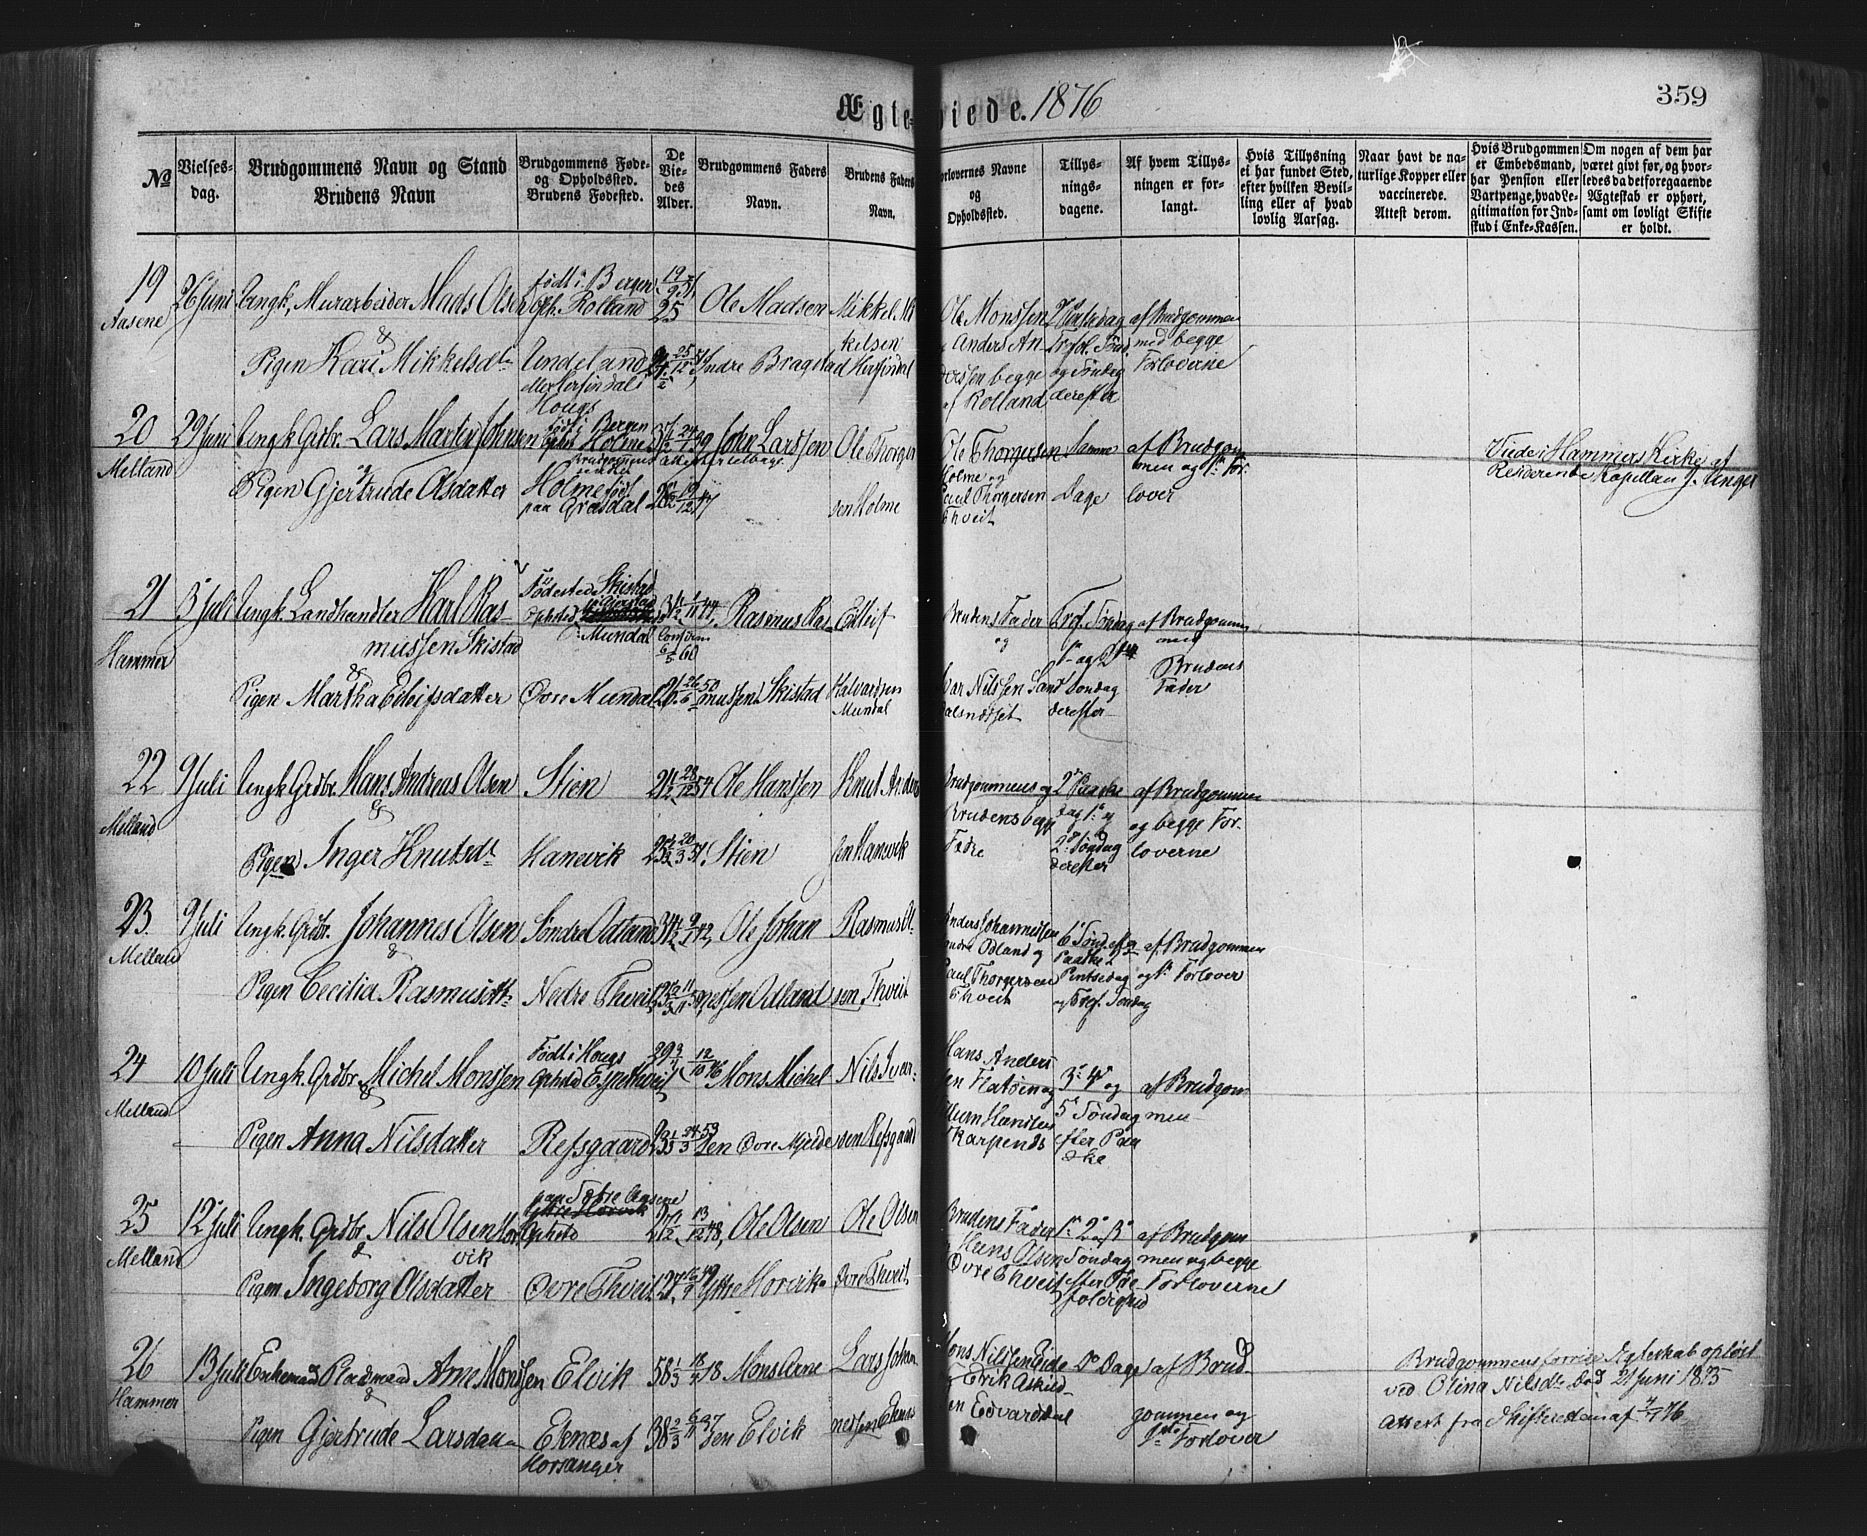 Ægte viede. 1876
359
No
Vielses-
dag.
Brudgommens Navn og Stand
Brudens Navn
Brudgommens Føde-
og Opholdssted.
Brudens Fødested.
De
Vie-
des
Alder.
Brudgommens Faders
Navn.
Brudens Faders
Navn.
orlovernes Navne
og
Opholdssted.
Tillys-
nings-
dagene.
Af hvem Tillys-
ningen er for-
langt.
Hvis Tillysning
ei har fundet Sted,
efter hvilken Bevil-
ling eller af hvad
lovlig Aarsag.
Naar havt de na-
turlige Kopper eller
vaccinerede.
Attest derom.
Hvis Brudgommen
er Embedsmand,
har Pension eller
Vartpenge, hvad Le-
gitimation for Ind-
skud i Enke-Kassen.
Om nogen af dem har
været givt før, og hvor-
ledes da det foregaaende
Ægteskab er ophørt,
samt om lovligt Skifte
er holdt.
19
Aasene
26 Juni
Ungk, Murarbeider Mads Olsen
&
Pigen Kari Mikkelsdtr
født i Bergen
Oph. Rolland
Undeland
25
Ole Madsen
Indre Bragstad
Mikkel Mi
kelsen
Herfindal
Ole Monssen
Anders An
derssen begge
af Rolland
2 Pintsedag
Tref. Sønd.
og Søndag
derefter
af Brudgommen
med begge
Forloverne
20
Melland
29 Juni
Ungk Grdbr. Lars Martin Johnsen
og
Pigen Gjertrude Olsdatter
Hougs
født i Bergen
Ophold Holme
Holme født
paa Græsdal
John Larssen
Ole Thorger
sen Holme
Ole Thorgersen
Holme og
Paul Thorgersen
Thveit
Samme
Dage
af Brudgom
men og 1ste For
lover
Viede i Hammers Kirke af
Residerende Kapellan J. Unger
21
Hammer
5 Juli
Ungk Landhandler Karl Ras
mussen Skistad
&
Pigen Martha Edleifsdatter
Fødested Skistad
Ophsted
Mundal
Øvre Mundal
Rasmus Ras
mussen Skistad
Edleif
Halvardsen
Mundal
Brudens Fader
og
Ivar Nilssen Sand
dalsnæsset
Tref. Søndag
1ste og 2den
Søndag
derefter
af Brudgommen
med
Brudens
Fader
22
Melland
9 Juli
Ungk Grdbr. Hans Andreas Olsen
&
Pigen Inger Knutsdtr
Stien
Hanevik
Ole Hanssen
Stien
Knut Anders
sen Hanevik
Brudgommens og
Brudens begge
Fædre
2den Paaske
dag 1ste og
2den Søndag
derefter
af Brudgommen
og begge For-
loverne
23
Melland
9 Juli
Ungk. Grdbr. Johannes Olsen
&
Pigen Cecilia Rasmusdtr
Søndre Odland
Nedre Thveit
Ole Johan
nessen Odland
Rasmus Ol
sen Thveit
Anders Johannessen
Søndre Odland og
Paul Thorgersen
Thveit
6 Sønd. efter
Paaske 2
Pintsedag
og Tref. Søndag
af Brudgommen
og 1ste Forlover
24
Melland
10 Juli
Ungk. Grdbr Michel Monssen
Pigen Anna Nilsdatter
Født i Hougs
Ophold Espethveit
Refsgaard
Mons Michel
sen Øvre Mjelde
Nils Ivar
sen Refsgaard
Hans Anders
sen Flatøen og
3de 4de og
5te Søndag
efter Paa
ske
af Brudgom
men
25
Melland
12 Juli
Ungk. Grdbr Nils Olsen Hor
vik
&
Pigen Ingeborg Olsdatter
paa Søbre Aasene
Ophold
Øvre Thveit
Ole Olsen
Yttre Horvik
Ole Olsen
Øvre Thveit
Brudens Fader
Hans Olsen
Øvre Thveit
1ste 2den og 3de
Søndag
efter Tre
foldighed
af Brudgom
men og begge
Forloverne
26
Hammer
13 Juli
Enkemand Pladsmand Arne Monssen
&
Pigen Gjertrude Larsdatter
Elvik
Eknæs af
Horsanger
Mons Arne
sen Elvik
Lars Johan
nessen Eknæs
Mons Nilssen Eide
og Erik Askild-
sen Edvardsdal
Do Dage
af Brud
gommen og
1ste Forlover
Brudgommens forrige Ægteskab opløst
ved Olina Nilsdtr Død 21 Juni 1875
Attest fra Skifteretten af